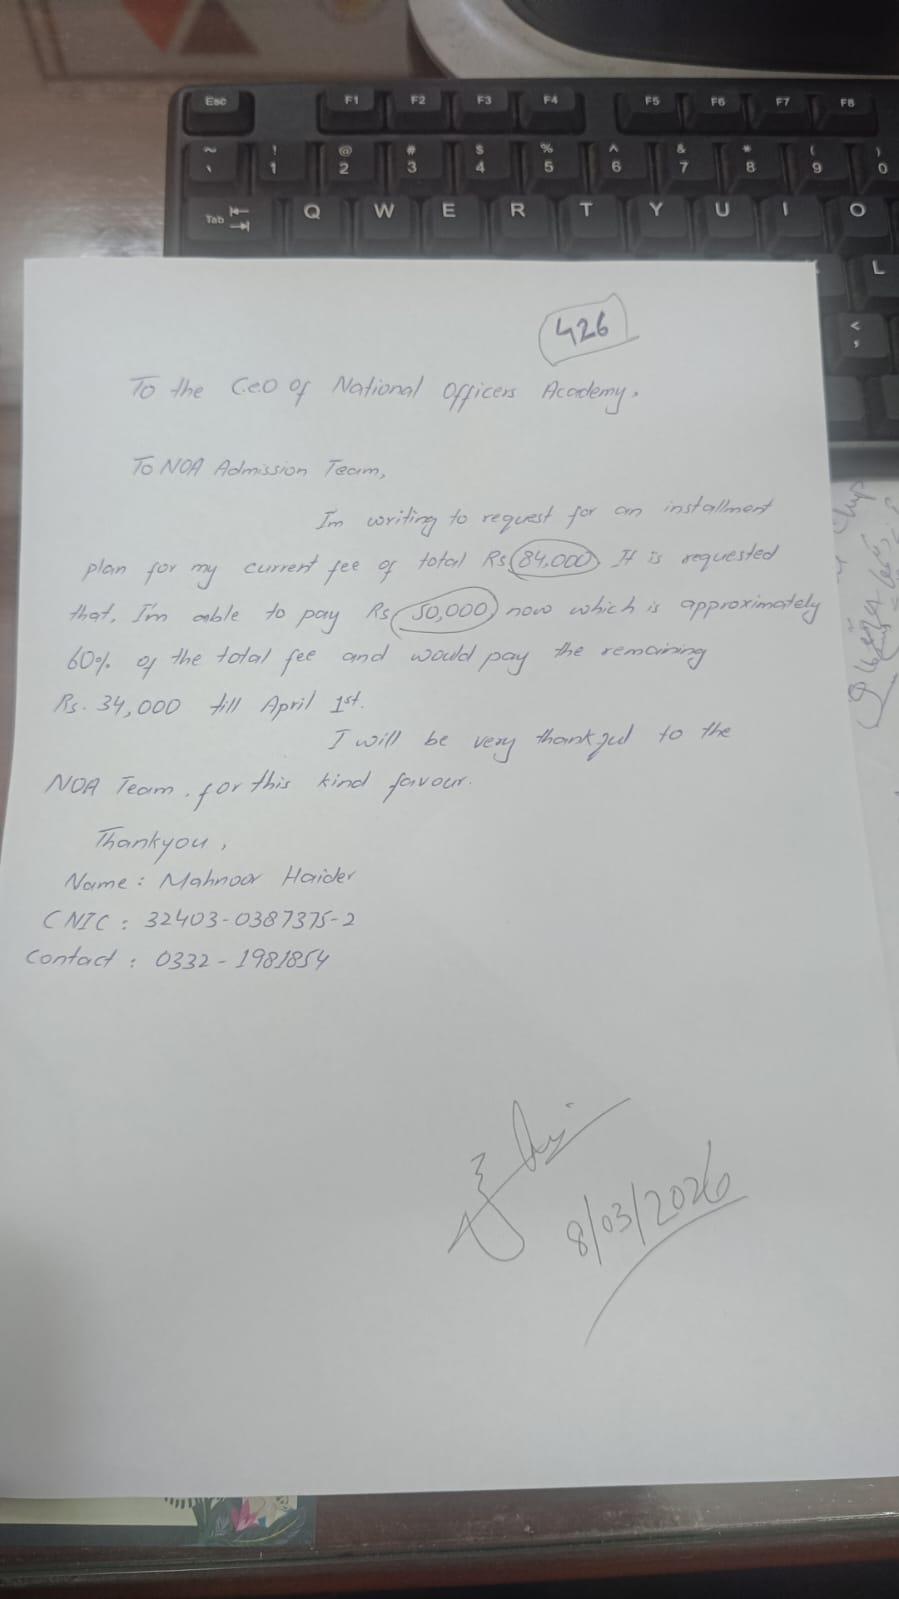 Esc F1 F2 F3 F4 F5 F6 F7 F8
~ ! @ # $ % ^ & * ( )
` 1 2 3 4 5 6 7 8 9 0
Tab Q W E R T Y U I O
L
<
,
426
To the CEO of National Officers Academy,
To NOA Admission Team,
Im writing to request for an installment
plan for my current fee of total Rs 84,000. It is requested
that, I'm able to pay Rs 50,000 now which is approximately
60% of the total fee and would pay the remaining
Rs. 34,000 till April 1st.
I will be very thankful to the
NOA Team. for this kind favour.
Thankyou,
Name: Mahnoor Haider
CNIC: 32403-0387375-2
Contact: 0332-1981854
8/03/2026